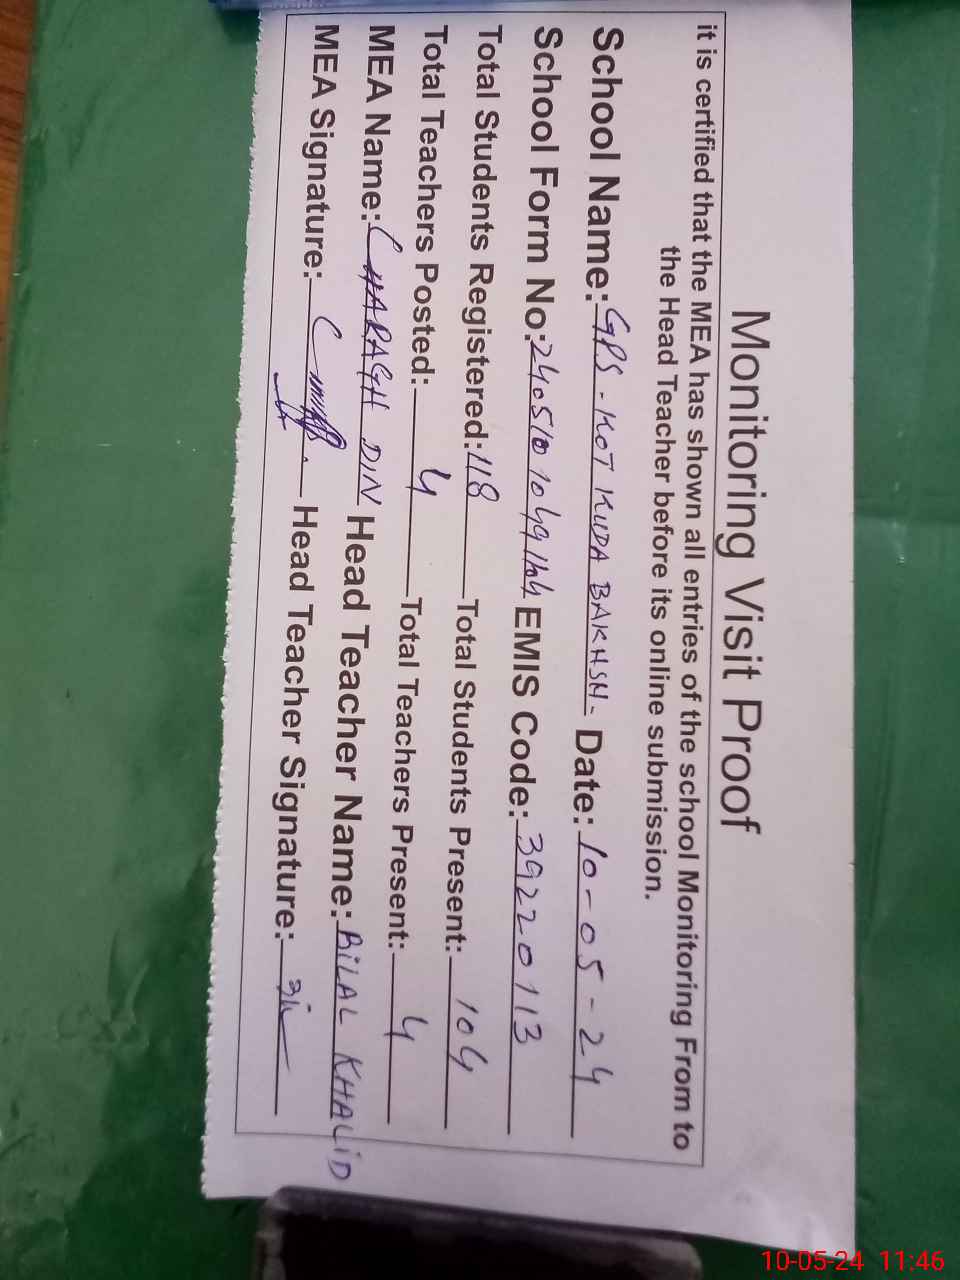 Monitoring Visit Proof
it is certified that the MEA has shown all entries of the school Monitoring From to
the Head Teacher before its online submission.
School Name: GPS - KOT KUDA BAKHSH - Date: 10-05-24
School Form No: EMIS Code: 39220113
Total Students Registered: 118 Total Students Present: 104
Total Teachers Posted: 4 Total Teachers Present: 4
MEA Name: CHARAGH DIN Head Teacher Name: BiLAL KHALiD
MEA Signature: Head Teacher Signature:
10-05-24 11:46